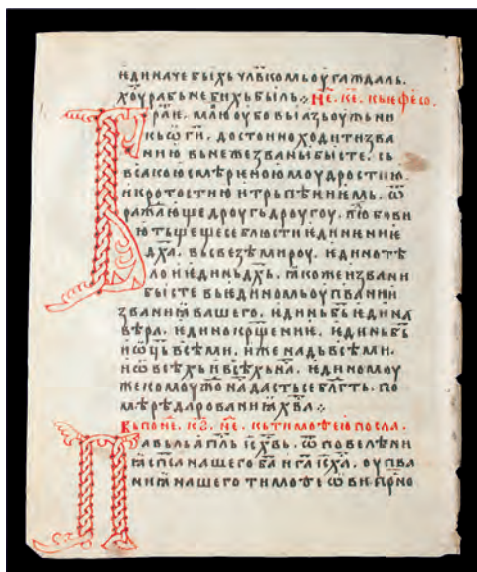 ѥдиначе быхь чл҃вкомь оугаждаль.
х҃оу рабь не бихь быль ⁘ Не҃. ке҃. кь ефесо.
Братїѥ. молю оубо вы азь оужьни
кь ѡ г҃и. достоино ходити зва
нию вь неже звани бысте. сь
всакою смѣрѥною моудростию.
и кротостию и трьпѣниѥмь. ѡ
ражающе дроугь дроугоу. любови
ю тьщеще се блюсти ѥдинѥниѥ
дх҃а. вь свезѣ мироу. ѥдино тѣ
ло и ѥдинь дх҃ь. ꙗкоже и звани
бысте вь ѥдиномь оупвании
званиꙗ вашего. ѥдинь г҃ь ѥдина
вѣра. ѥдино кр҃щение. ѥдинь б҃ь
и ѡц҃ь всѣми. иже надь всѣми.
и ѡ всѣхь и всѣхь на. ѥдиномоу
же комоуж҃о на дасть се блг҃ть. по
мѣрѣ дарованиꙗ х҃ва ⁘
Вь по не҃. кз҃. не҃. кь тимоѳею посла.
Павьль ап҃ль іс҃ хв҃ь. ѡ повелѣни
ꙗ сп҃са нашего б҃а и г҃а іс҃ х҃а. оупва
ниꙗ нашего тимоѳе ѡви прно